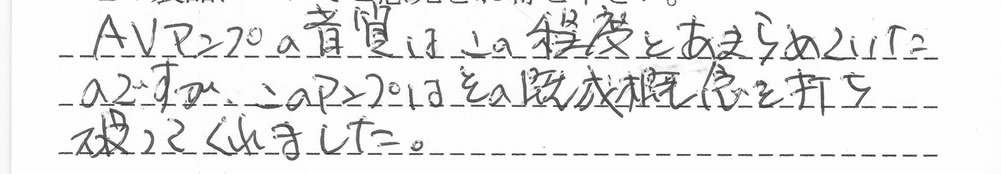 AVアンプの音質はこの程度とあきらめていた
のですが、このアンプはその既成概念を打ち
破ってくれました。